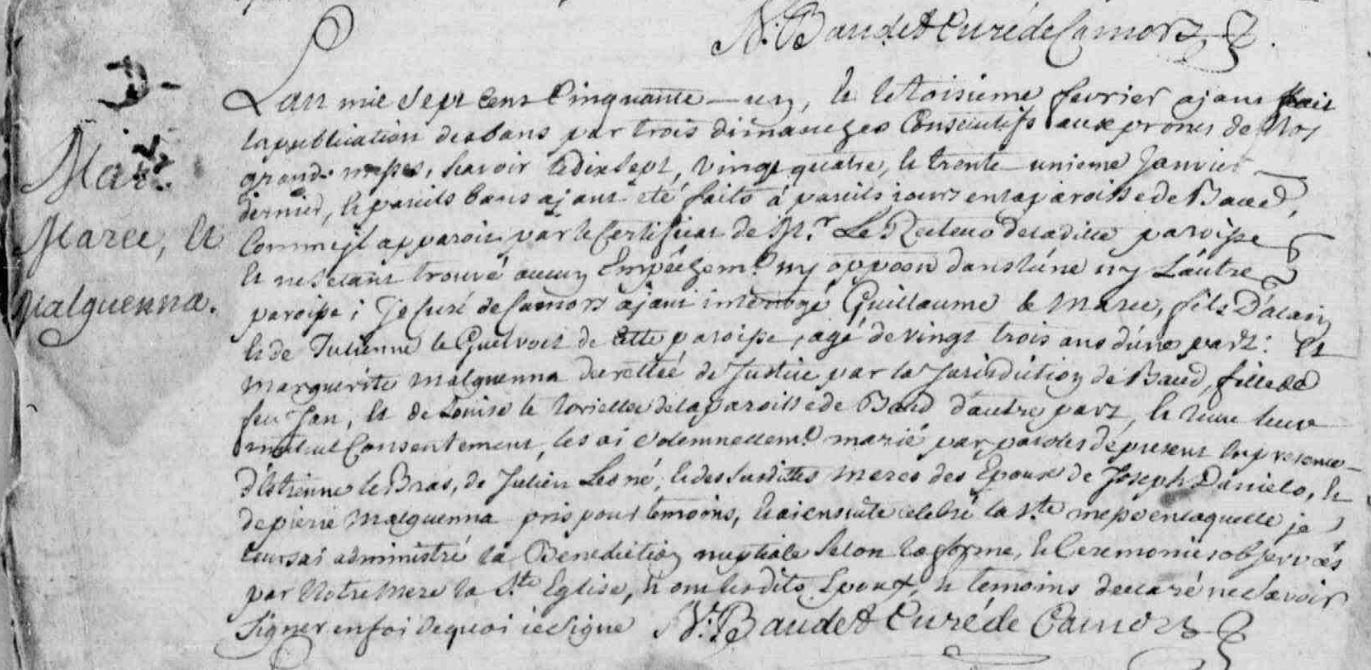 N: Baudet Curé de Camors
Mar:
Maree, et
Malguenna.
L'an mil sept cent Cinquante-un, le troisieme fevrier ajant fait
la publication des bans par trois dimanches Consecutifs aux prones de Nos
grand-messes, scavoir le dix sept, vingt quatre, le trente-unieme Janvier
dernier, et pareils bans ajant été faits à pareils jours en la paroisse de Baud,
Comme il apparoit par le Certificat de Mr. Le Recteur de la ditte paroisse
et ne s'etant trouvé aucun Empéchemt. ny opposon dans l'une ny L'autre
paroisse; Je Curé de Camors ajant interrogé Guillaume le Maree, fils D'alain
et de Julienne le Guelvout de cette paroisse, agé de vingt trois ans d'une part: Et
Marguerite Malguenna decretée de Justice par la Jurisdiction de Baud, fille de
feu Jan, et de Louise le de la paroisse de Baud d'autre part, et leur
mutuel Consentement, les ai solemnellemt. marié par paroles de present en presence
d'Estienne le Bras, de Julien Lesné, et des susdittes meres des Epoux de Joseph Danielo, et
de pierre Malguenna pris pour temoins, et ai ensuite celebré la Ste. messe en laquelle je
leurs ai administré la Benediction nuptiale selon la forme, et Ceremonies observées
par Notre Mere la Ste. Eglise, et ont lesdits Epoux, et temoins declaré ne scavoir
signer en foi de quoi je signe N: Baudet Curé de Camors